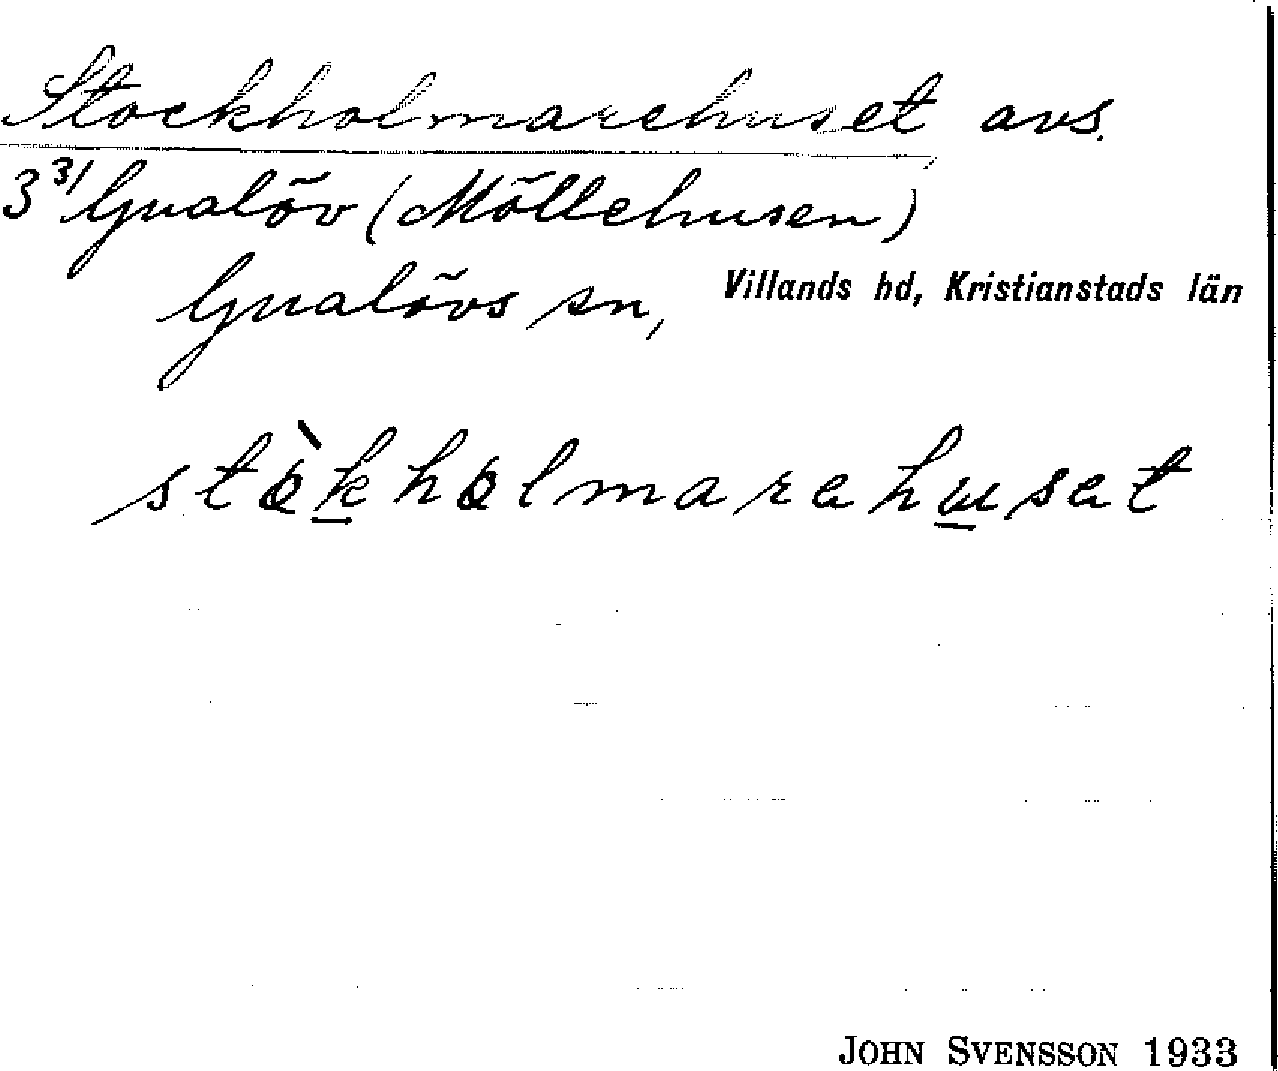 Stockholmarehuset avs.
3³¹ Gualöv (Möllehusen)
Gualövs sn, Villands hd, Kristianstads län
stòkholmarehuset
JOHN SVENSSON 1933